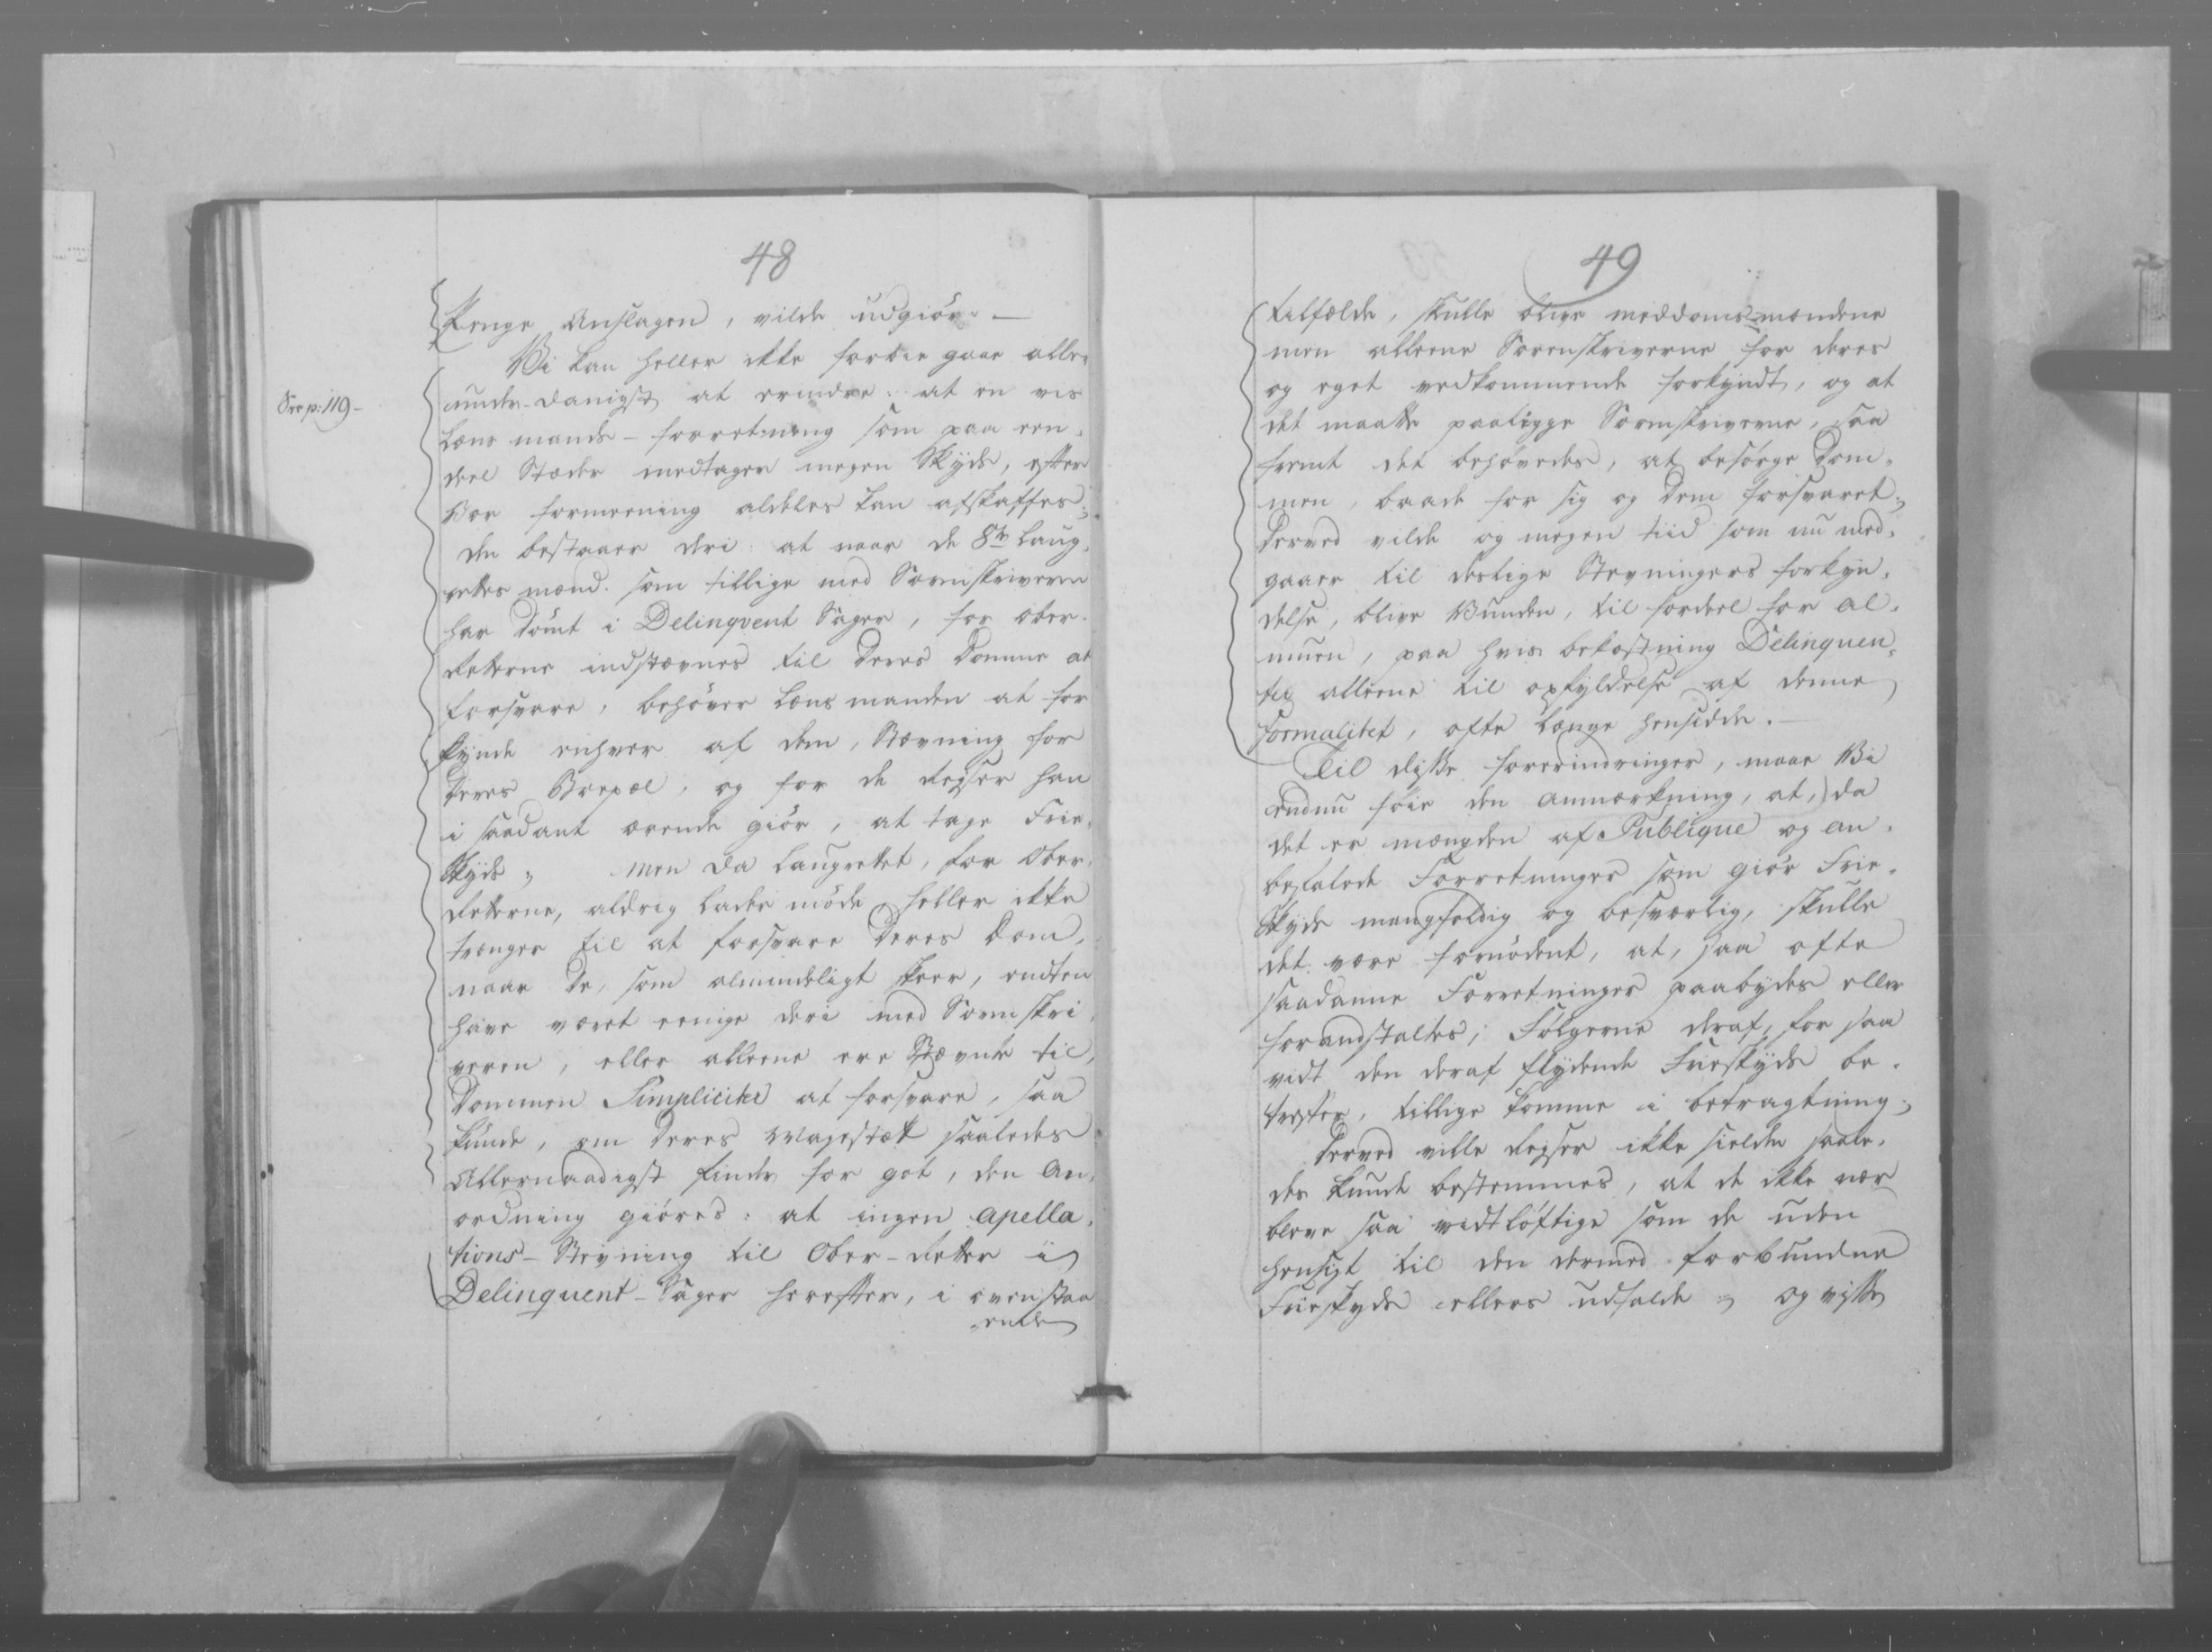 48
Penge Anslagen, vilde udgiöre. —
Vi kan heller ikke forbie gaae aller-
See p: 119 -
under-danigst at erindre: at en vis
Lens mands - forretning som paa een,
deel Stæder medtager megen Skyds, efter
Vor formeening aldeles kan afskaffes;
den bestaaer deri: at naar de 8te Laug,
rettes mænd. som tillige med Sorenskriveren
har dömt i Delinqvent Sager, for Ober-
Retterne indstævnes til Deres Domme at
forsvare, behöver Lens manden at for
kynde enhver af dem, Stævning for
Deres Boepæl, og for de Reyser han
i saadant ærende giör, at tage Frie,
Skyds; men da Laugrettet, for Ober,
Retterne, aldrig lader möde, heller ikke
trænger til at forsvare Deres Dom,
naar De, som almindeligt skeer, endten
have været eenige deri med Sorenskri
veren, eller alleene ere Stævnte til,
Dommen Simpliciter at forsvare, saa
kunde, om Deres Majestæt saaledes
Allernaadigst finder for got, den An,
ordning giöres: at ingen Apella,
tions - Stevning til Ober-Retter i
Delinquent - Sager herefter, i ovenstaa
ende
49
tilfælde, skulle blive meddoms-mændene
men alleene Sorenskriverne for deres
og eget vedkommende forkyndt, og at
det maatte paaligge Sorenskriverne, saa
fremt det behövedes, at besörge Dom,
men, baade for sig og Dem forsvaret;
Derved vilde og megen tiid som nu med,
gaaer til deslige Stevningers forkyn,
delse, blive Vunden, til fordeel for Al,
muen, paa hvis bekostning Delinquen,
ter alleene til opfyldelse af denne
formalitet, ofte længe hensidde. —
Til disse forerindringer, maae Vi
endnu föie den anmærkning, at, da
det er mængden af Publique og an,
befalede Forretninger som giör Frie,
Skyds mangfoldig og besværlig, skulle
det være fornödent, at, saa ofte
saadanne Forretninger paabydes eller
foranstaltes, Fölgerne deraf, for saa
vidt den deraf flydende Frieskyds be,
treffer, tillige komme i betragtning;
Derved ville Reyser ikke sielden saale,
des kunde bestemmes, at de ikke nær
bleve saa vidtlöftige som de uden
hensigt til den dermed forbundne
Frieskyds ellers udfalde; og visse